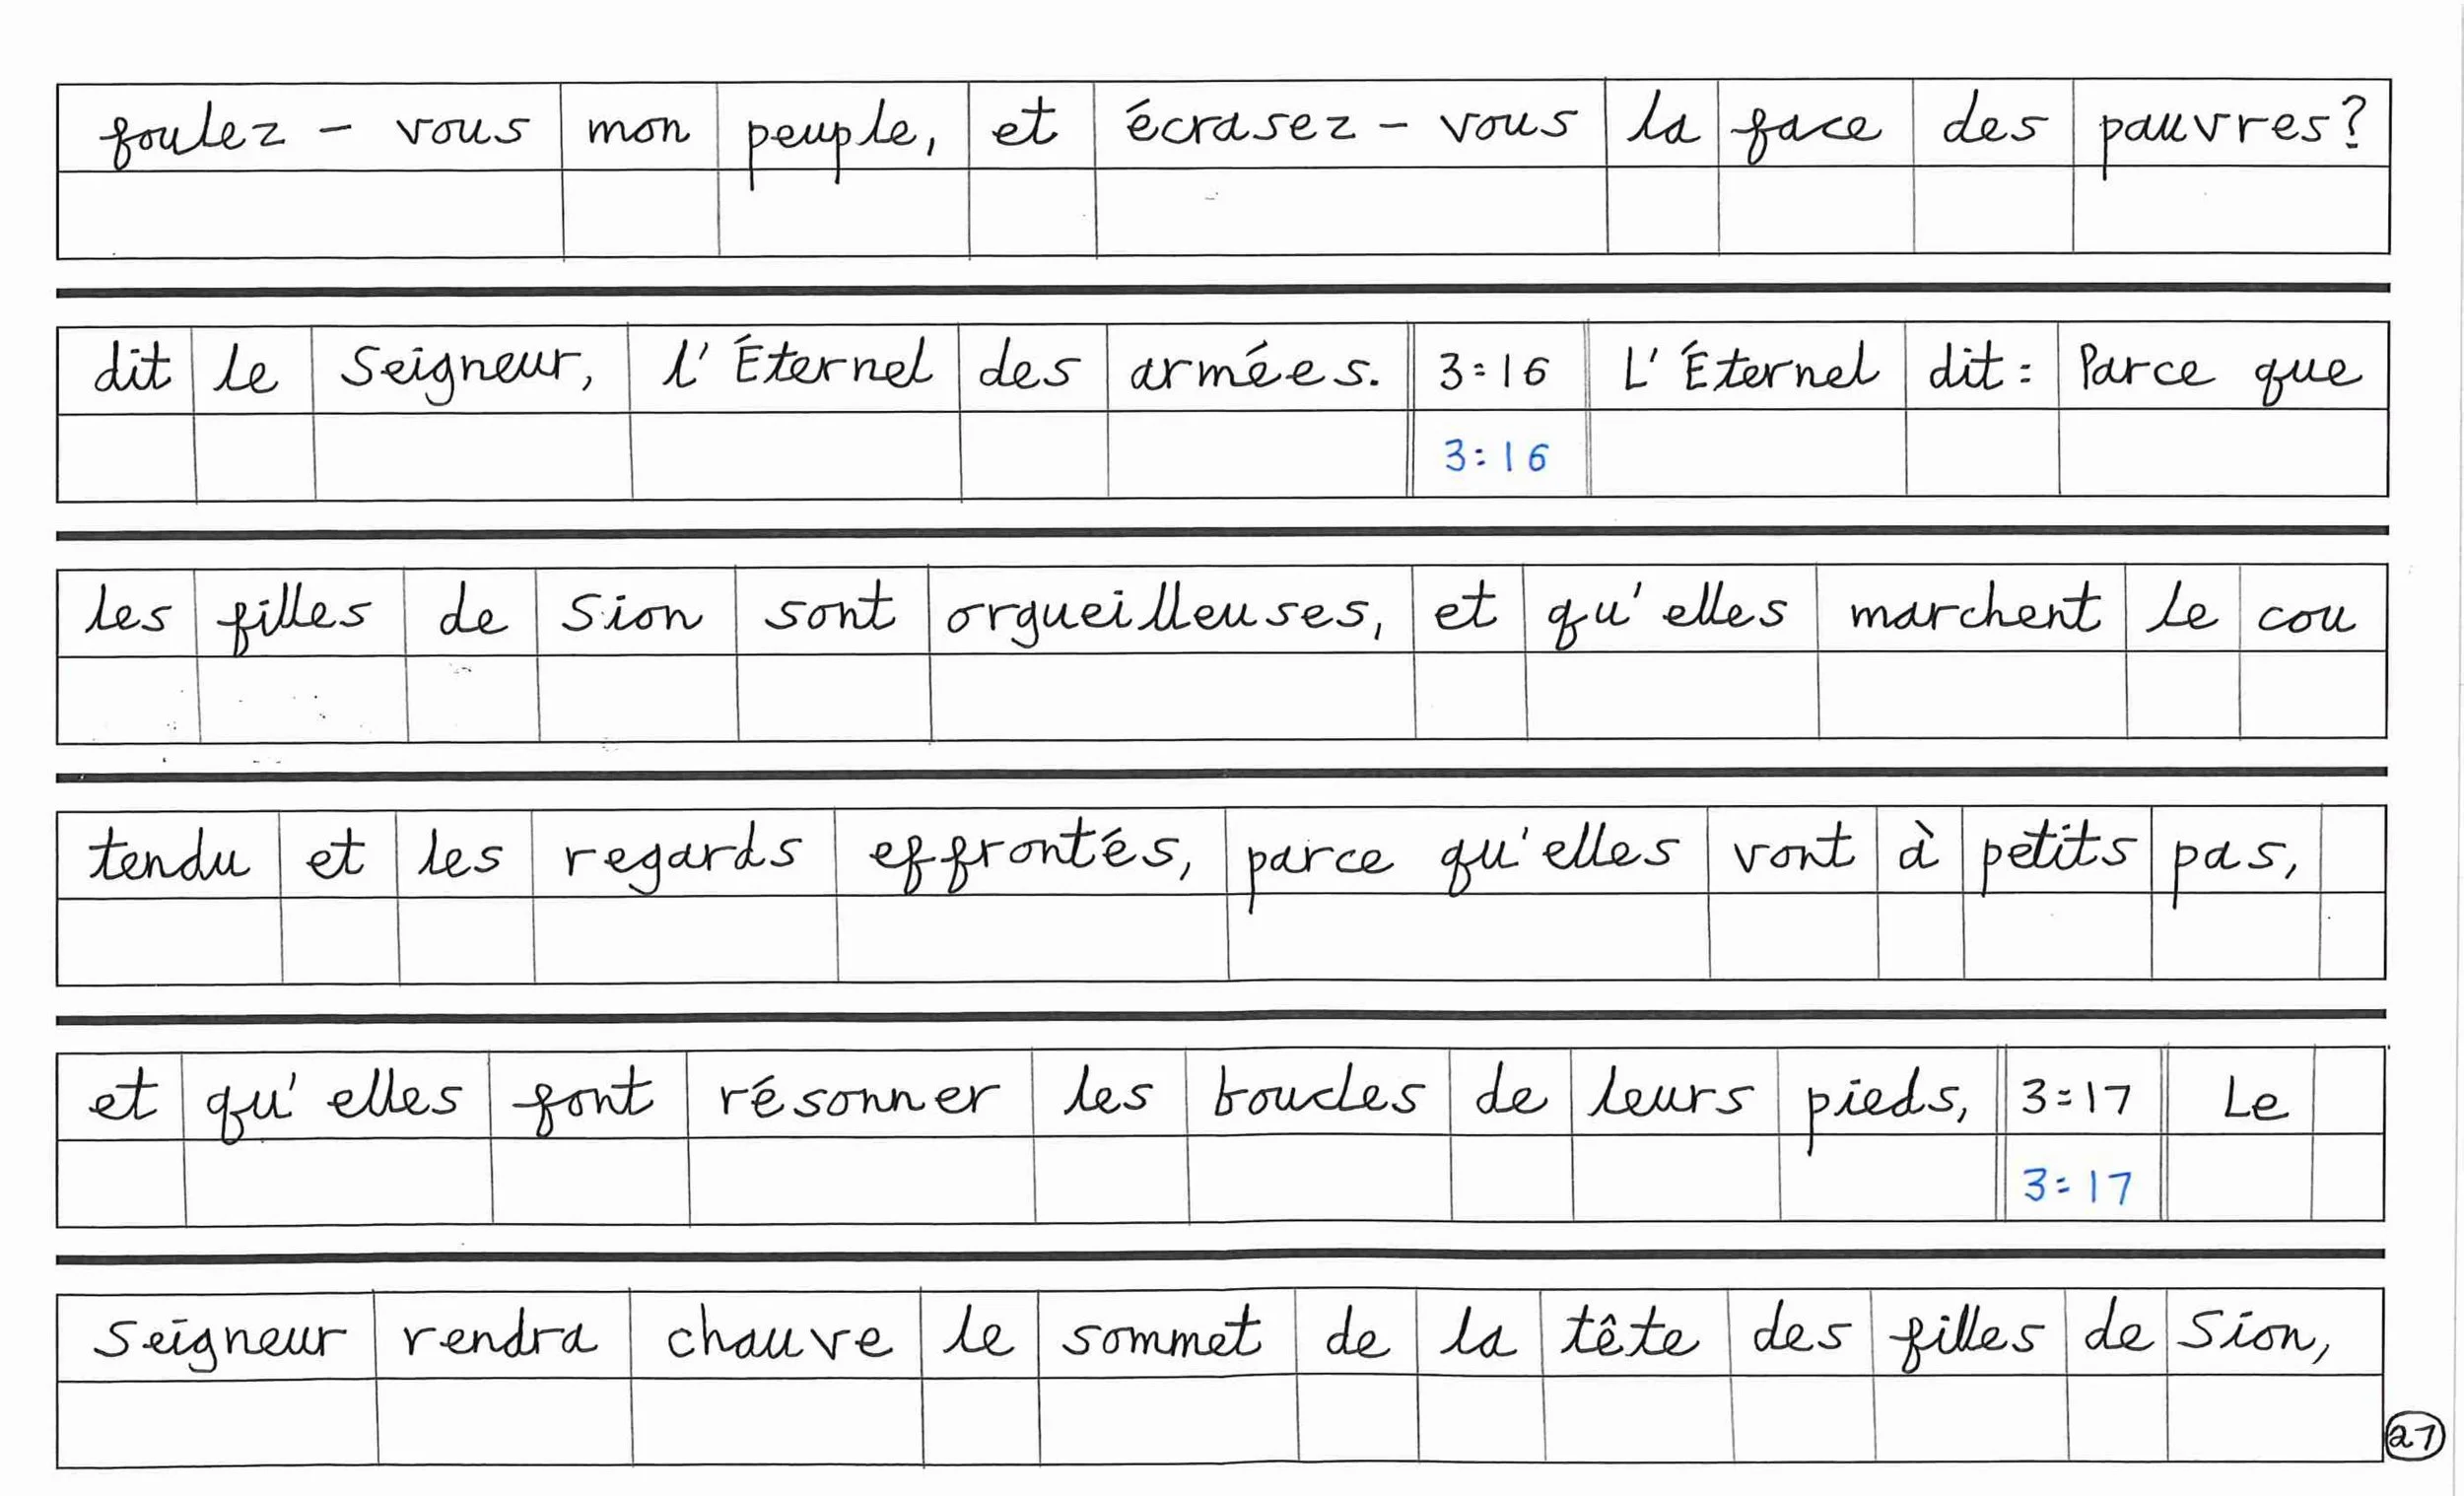 foulez - vous mon peuple, et écrasez - vous la face des pauvres?
dit le Seigneur, l'Éternel des armées. 3:16 L'Éternel dit: Parce que
3:16
les filles de Sion sont orgueilleuses, et qu'elles marchent le cou
tendu et les regards effrontés, parce qu'elles vont à petits pas,
et qu'elles font résonner les boucles de leurs pieds, 3:17 Le
3:17
Seigneur rendra chauve le sommet de la tête des filles de Sion,
27